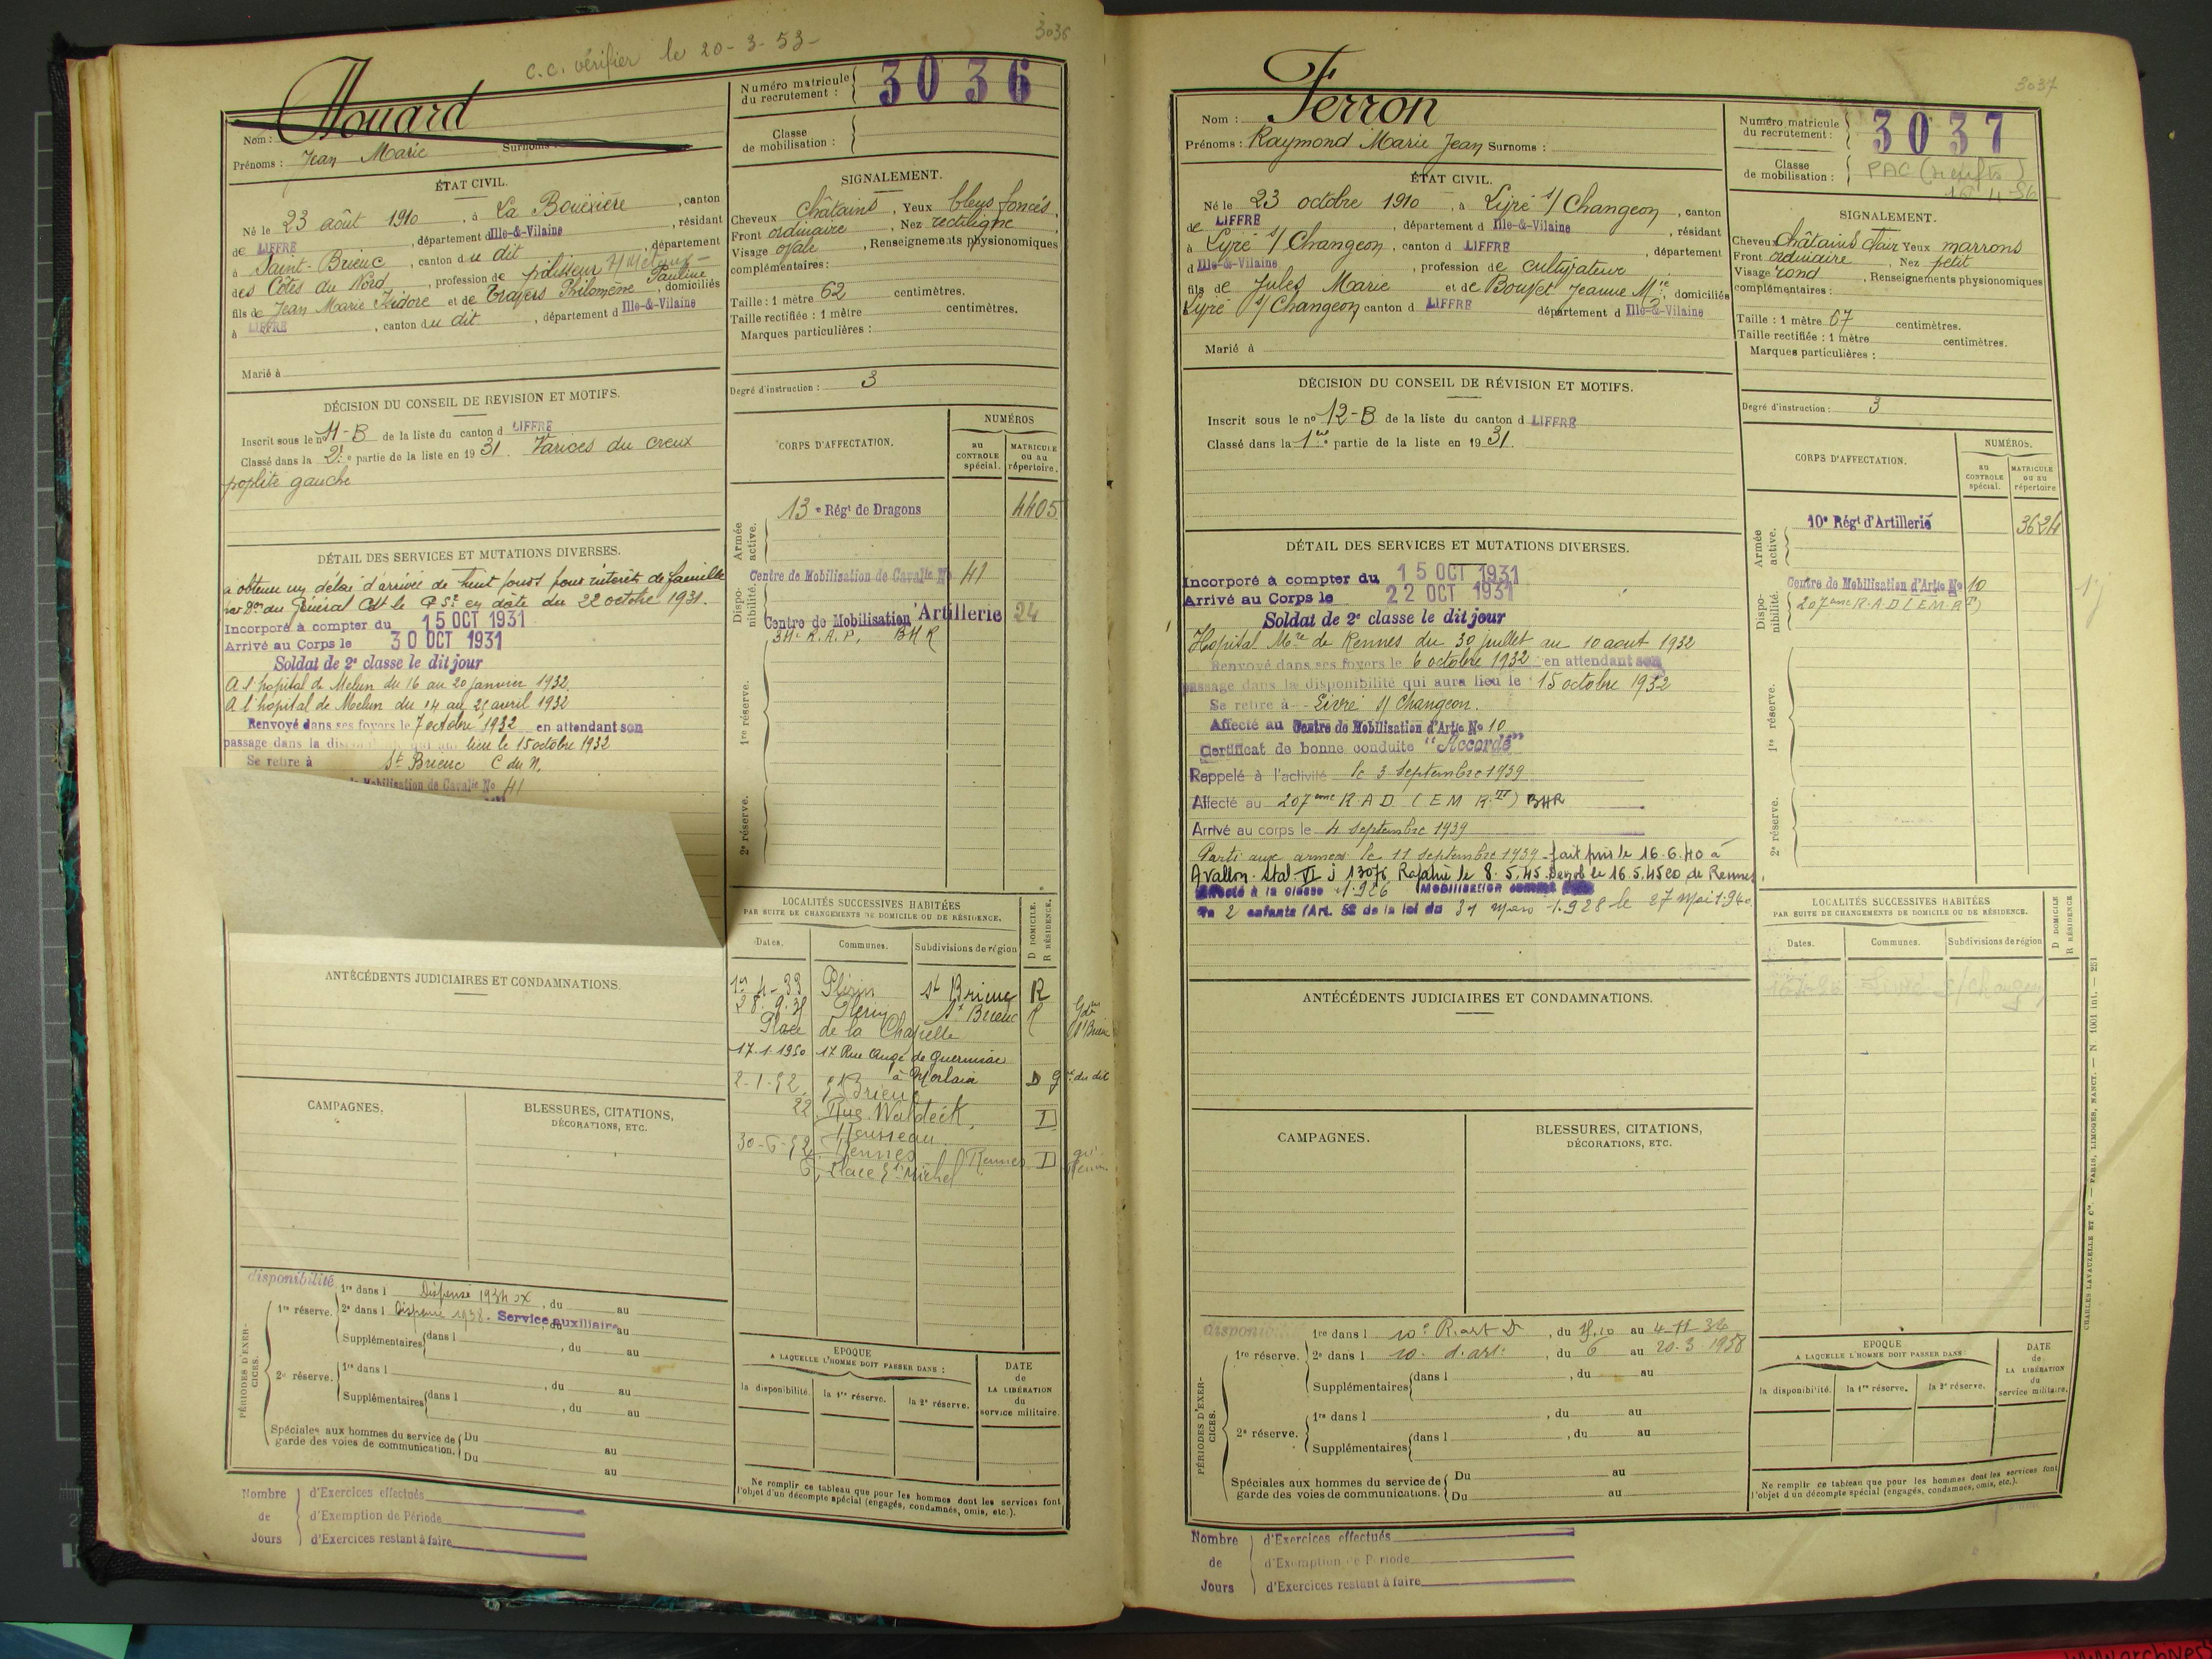 c.c. vérifier le 20-3-53-
3036
Nom :
Prénoms : Jean Marie Surnoms :
Numéro matricule du recrutement : 3036
Classe de mobilisation :
ÉTAT CIVIL.
Né le 23 août 1910, à La Bouëxière, canton
de LIFFRÉ, département d Ille-&-Vilaine, résidant
à Saint-Brieuc, canton du dit, département
des Côtes du Nord, profession de polisseur
fils de Jean Marie Isidore et de Travers Philomène Pauline, domiciliés
à LIFFRÉ, canton du dit, département d Ille-&-Vilaine
Marié à
SIGNALEMENT.
Cheveux Châtains, Yeux bleus foncés,
Front ordinaire, Nez rectiligne
Visage ovale, Renseignements physionomiques
complémentaires :
Taille : 1 mètre 62 centimètres.
Taille rectifiée : 1 mètre centimètres.
Marques particulières :
Degré d'instruction : 3
DÉCISION DU CONSEIL DE REVISION ET MOTIFS.
Inscrit sous le n° 11-B de la liste du canton d LIFFRÉ
Classé dans la 2e partie de la liste en 1931. Varices du creux
poplité gauche
DÉTAIL DES SERVICES ET MUTATIONS DIVERSES.
a obtenu un délai d'arrivée de huit jours pour intérêts de famille
du Général Cdt le en date du 22 octobre 1931.
Incorporé à compter du 15 OCT 1931
Arrivé au Corps le 30 OCT 1931
Soldat de 2e classe le dit jour
A l'hopital de Melun du 16 au 20 janvier 1932.
A l'hopital de Melun du 14 au 25 avril 1932
Renvoyé dans ses foyers le 7 octobre 1932 en attendant son
passage dans la disponibilité qui aura lieu le 15 octobre 1932
Se retire à St Brieuc C du N.
Mobilisation de Cavalie No 41
CORPS D'AFFECTATION.
NUMÉROS
au CONTROLE spécial.
MATRICULE ou au répertoire.
Armée active.
13e Régt de Dragons 4405
Disponibilité.
Centre de Mobilisation de Cavalie No 41
Centre de Mobilisation Artillerie 24
R.A.P. BHR
1re réserve.
2e réserve.
LOCALITÉS SUCCESSIVES HABITÉES
PAR SUITE DE CHANGEMENTS DE DOMICILE OU DE RÉSIDENCE.
D DOMICILE.
R RÉSIDENCE.
Dates. Communes. Subdivisions de région
Plérin St Brieuc R
Plérin St Brieuc R
Place de la Chapelle
17.1.1950 17 Rue Ange de Guernisac
à Morlaix D
2-1-52 St Brieuc
22 Rue Waldeck D
Rousseau
30-6-52 Rennes Rennes D
6, Place St Michel
ANTÉCÉDENTS JUDICIAIRES ET CONDAMNATIONS.
CAMPAGNES.
BLESSURES, CITATIONS,
DÉCORATIONS, ETC.
PÉRIODES D'EXERCICES.
disponibilité
1re réserve.
1re dans l Dispensé 1934, du au
2e dans l Dispensé 1938. Service auxiliaire du au
Supplémentaires dans l, du au
2e réserve.
1re dans l, du au
Supplémentaires dans l, du au
Spéciales aux hommes du service de garde des voies de communication. Du au
Du au
EPOQUE
A LAQUELLE L'HOMME DOIT PASSER DANS :
la disponibilité. la 1re réserve. la 2e réserve.
DATE de LA LIBÉRATION du service militaire.
Ne remplir ce tableau que pour les hommes dont les services font
l'objet d'un décompte spécial (engagés, condamnés, omis, etc.).
Nombre de Jours
d'Exercices effectués
d'Exemption de Période
d'Exercices restant à faire
3037
Nom : Ferron
Prénoms : Raymond Marie Jean Surnoms :
Numéro matricule du recrutement : 3037
Classe de mobilisation : PAC
ÉTAT CIVIL.
Né le 23 octobre 1910, à Livré s/ Changeon, canton
de LIFFRÉ, département d Ille-&-Vilaine, résidant
à Livré s/ Changeon, canton d LIFFRÉ, département
d Ille-&-Vilaine, profession de cultivateur
fils de Jules Marie et de Bouvet Jeanne Mie, domiciliés
Livré s/ Changeon canton d LIFFRÉ département d Ille-&-Vilaine
Marié à
SIGNALEMENT.
Cheveux Châtains clair Yeux marrons
Front ordinaire, Nez petit
Visage rond, Renseignements physionomiques
complémentaires :
Taille : 1 mètre 67 centimètres.
Taille rectifiée : 1 mètre centimètres.
Marques particulières :
Degré d'instruction : 3
DÉCISION DU CONSEIL DE RÉVISION ET MOTIFS.
Inscrit sous le no 12-B de la liste du canton d LIFFRÉ
Classé dans la 1ere partie de la liste en 1931.
DÉTAIL DES SERVICES ET MUTATIONS DIVERSES.
Incorporé à compter du 15 OCT 1931
Arrivé au Corps le 22 OCT 1931
Soldat de 2e classe le dit jour
Hopital Mre de Rennes du 30 juillet au 10 aout 1932
Renvoyé dans ses foyers le 6 octobre 1932 en attendant son
passage dans la disponibilité qui aura lieu le 15 octobre 1932
Se retire à Livré s/ Changeon.
Affecté au Centre de Mobilisation d'Artie No 10
Certificat de bonne conduite "Accordé"
Rappelé à l'activité le 3 Septembre 1939
Affecté au 207eme R.A.D. (E M R. VI) BHR
Arrivé au corps le 4 septembre 1939
Parti aux armées le 11 septembre 1939 fait pris le 16.6.40 à
Avallon. Stal. VI j 13076 Rapatrié le 8.5.45 Démob le 16.5.45 CD de Rennes.
Affecté à la classe 1.906 Mobilisation
2 enfants (Art. 58 de la loi du 31 mars 1.928 le 27 Mai 1940
CORPS D'AFFECTATION.
NUMÉROS.
au CONTROLE spécial.
MATRICULE ou au répertoire
Armée active.
10e Régt d'Artillerie 3624
Disponibilité.
Centre de Mobilisation d'Artie No 10
207eme R.A.D (E.M.R.)
1re réserve.
2e réserve.
LOCALITÉS SUCCESSIVES HABITÉES
PAR SUITE DE CHANGEMENTS DE DOMICILE OU DE RÉSIDENCE.
D DOMICILE
R RÉSIDENCE
Dates. Communes. Subdivisions de région
Livré s/Changeon
ANTÉCÉDENTS JUDICIAIRES ET CONDAMNATIONS.
CAMPAGNES.
BLESSURES, CITATIONS,
DÉCORATIONS, ETC.
PÉRIODES D'EXERCICES.
1re réserve.
1re dans l 10e R. art D, du au 4-11-34
2e dans l 10. d. art., du 6 au 20.3.1938
Supplémentaires dans l, du au
2e réserve.
1re dans l, du au
Supplémentaires dans l, du au
Spéciales aux hommes du service de garde des voies de communications. Du au
Du au
EPOQUE
A LAQUELLE L'HOMME DOIT PASSER DANS
la disponibilité. la 1re réserve. la 2e réserve.
DATE de LA LIBÉRATION du service militaire.
Ne remplir ce tableau que pour les hommes dont les services font
l'objet d'un décompte spécial (engagés, condamnés, omis, etc.).
Nombre de Jours
d'Exercices effectués
d'Exemption de Période
d'Exercices restant à faire
CHARLES-LAVAUZELLE ET Cie. — PARIS, LIMOGES, NANCY. — N 1001 int. — 251